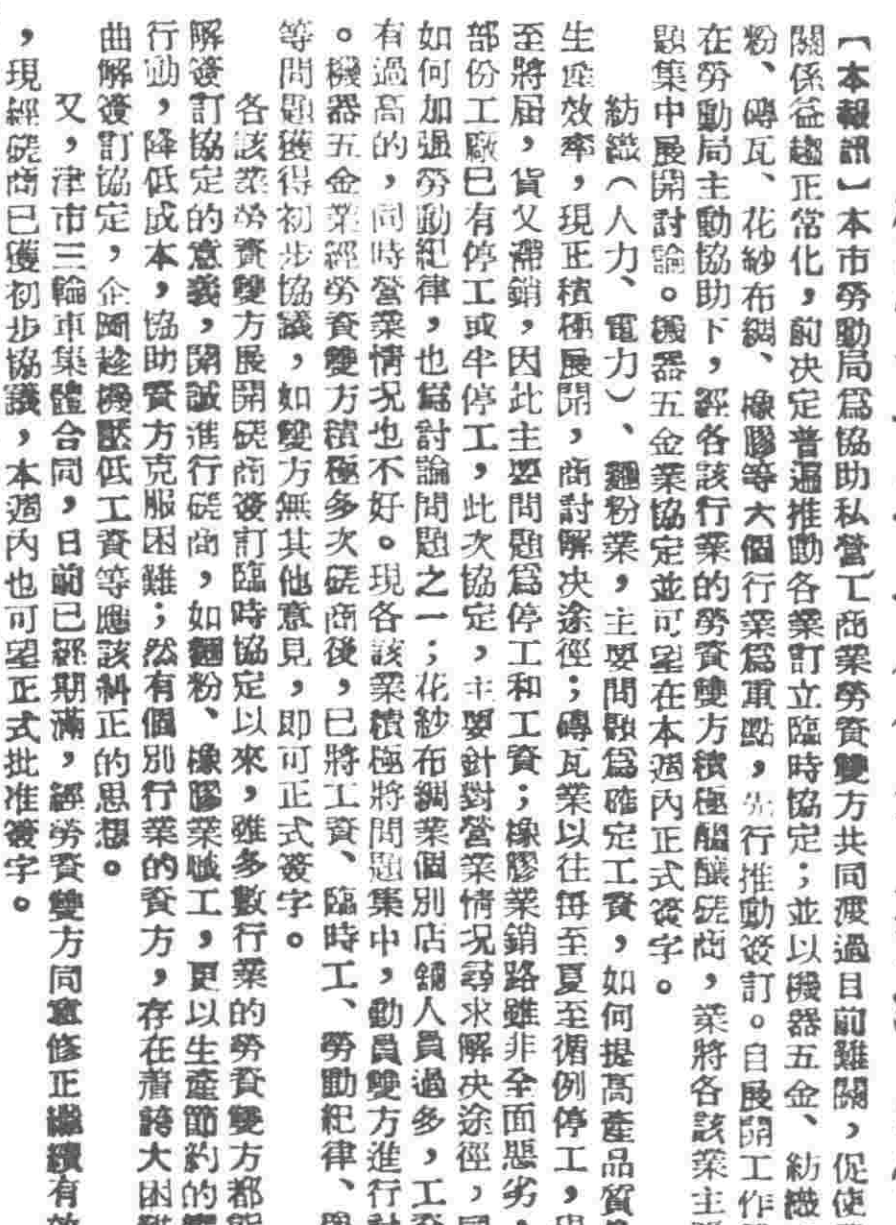 【本報訊】本市勞動局爲協助私營工商業勞資雙方共同渡過目前難關，促使
關係益趨正常化，前決定普遍推動各業訂立臨時協定；並以機器五金、紡織
粉、磚瓦、花紗布綢、橡膠等六個行業爲重點，先行推動簽訂。自展開工作
在勞動局主動協助下，經各該行業的勞資雙方積極醞釀磋商，業將各該業主
題集中展開討論。機器五金業協定並可望在本週內正式簽字。
紡織（人力、電力）、麵粉業，主要問題爲確定工資，如何提高產品質
生產效率，現正積極展開，商討解決途徑；磚瓦業以往每至夏至循例停工，
至將屆，貨又滯銷，因此主要問題爲停工和工資；橡膠業銷路雖非全面惡劣，
部份工廠已有停工或半停工，此次協定，主要針對營業情況尋求解決途徑，
如何加强勞動紀律，也爲討論問題之一；花紗布綢業個別店舖人員過多，工
有過高的，同時營業情況也不好。現各該業積極將問題集中，動員雙方進行
。機器五金業經勞資雙方積極多次磋商後，已將工資、臨時工、勞動紀律、
等問題獲得初步協議，如雙方無其他意見，即可正式簽字。
各該業勞資雙方展開磋商簽訂臨時協定以來，雖多數行業的勞資雙方都能
解簽訂協定的意義，開誠進行磋商，如麵粉、橡膠業職工，更以生產節約的
行動，降低成本，協助資方克服困難；然有個別行業的資方，存在着誇大困難
曲解簽訂協定，企圖趁機壓低工資等應該糾正的思想。
又，津市三輪車集體合同，日前已經期滿，經勞資雙方同意修正繼續有效
，現經磋商已獲初步協議，本週內也可望正式批准簽字。